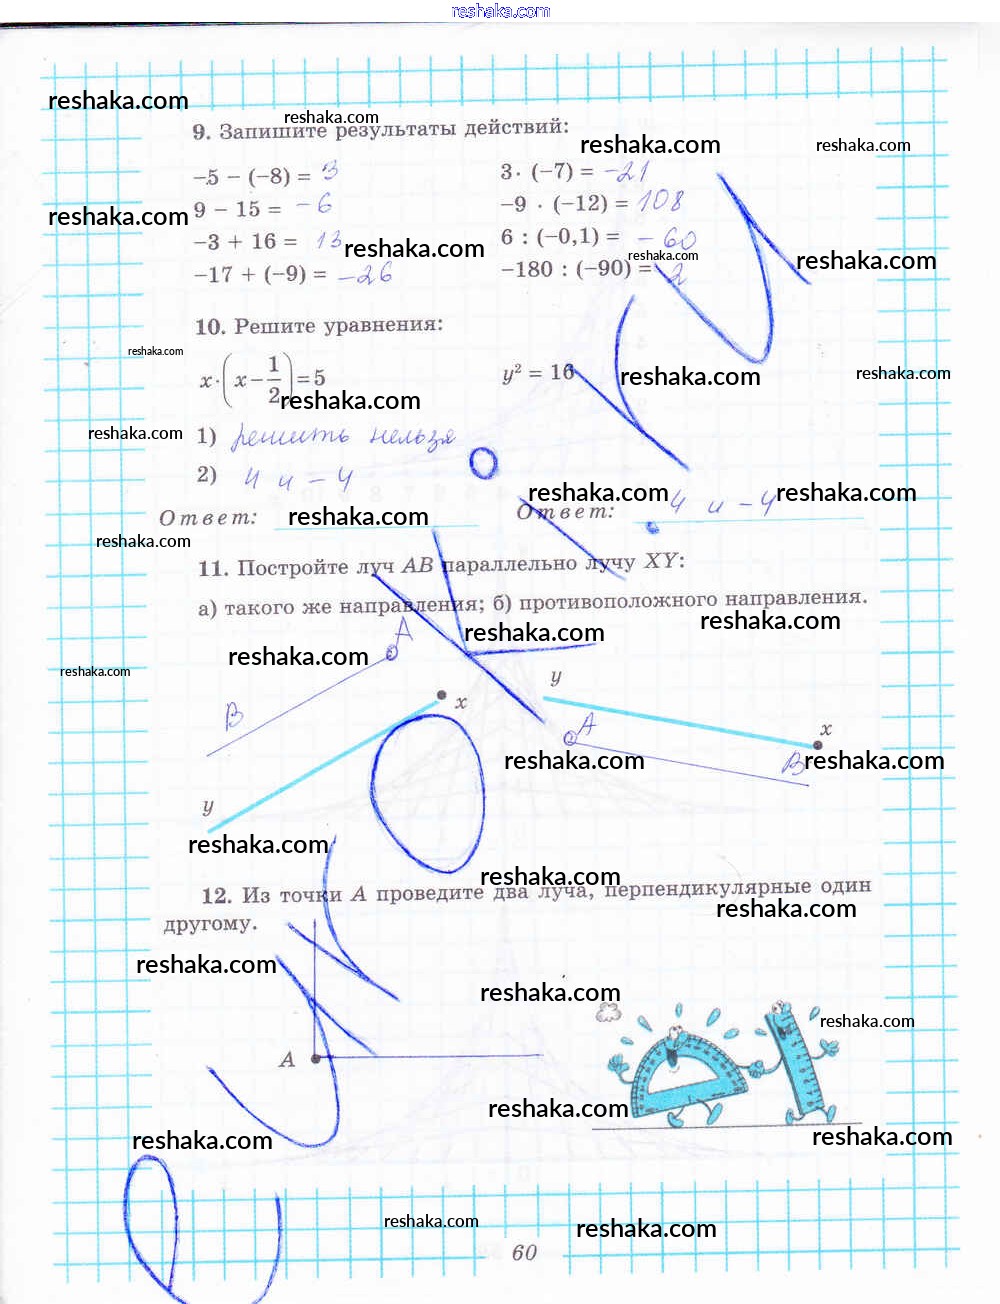 reshaka.com
reshaka.com
reshaka.com
9. Запишите результаты действий:
reshaka.com
reshaka.com
–5 – (–8) = 3
3· (–7) = –21
9 – 15 = –6
–9 · (–12) = 108
reshaka.com
–3 + 16 = 13
6 : (–0,1) = –60
reshaka.com
reshaka.com
reshaka.com
–17 + (–9) = –26
–180 : (–90) = 2
10. Решите уравнения:
reshaka.com
x·(x–1/2)=5
y² = 16
reshaka.com
reshaka.com
reshaka.com
reshaka.com
1) решить нельзя
2) 4 и –4
reshaka.com
reshaka.com
Ответ:
reshaka.com
Ответ: 4 и –4
reshaka.com
11. Постройте луч AB параллельно лучу XY:
а) такого же направления; б) противоположного направления.
reshaka.com
reshaka.com
A
reshaka.com
reshaka.com
y
B
x
A
x
reshaka.com
B
reshaka.com
y
reshaka.com
reshaka.com
12. Из точки A проведите два луча, перпендикулярные один
другому.
reshaka.com
reshaka.com
reshaka.com
reshaka.com
A
reshaka.com
reshaka.com
reshaka.com
reshaka.com
reshaka.com
60